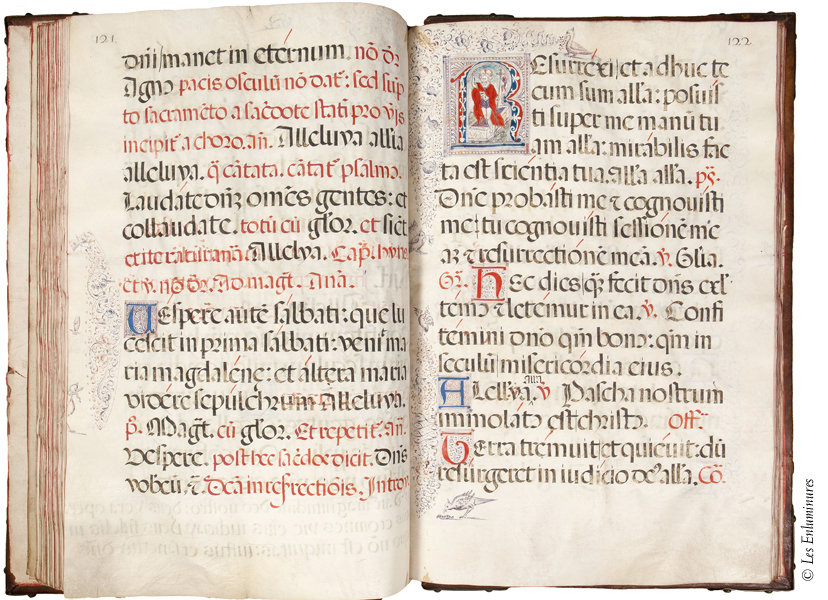 121
dn̄i manet in eternum. nō dr̄
Agnꝰ pacis osculū nō dat᷑: sed sūp
to sacramēto a sac̄dote stati pro vīs
incipit᷑ a choro. an̄. Alleluya all̄ia
alleluya. q̄ cātata. cātat᷑ psalmꝰ.
Laudate dn̄ꝫ omēs gentes: et
collaudate. totū cū glōr. et sic̄
et ite Alleluya. Cap.
nō dr̄. Ad magt̄. Anā.
Uespere autē sabbati: que lu
cescit in prima sabbati: venit ma
ria magdaléne: et altera maria
videre sepulchrum Alleluya.
p̄. Magt̄. cū glōr. Et repetit᷑. an̄.
Vespere. post hec sac̄doe dicit. Dn̄s
vobcū. ⁊. Dēa in refrectiōis. Introꝰ.
122
Resurrexi et adhuc te
cum sum all̄a: posuis
ti super me manū tu
am all̄a: mirabilis fac
ta est scientia tua all̄a all̄a. pš.
Dn̄e probasti me ⁊ cognovisti
me: tu cognovisti sessionē me
aꝫ ⁊ resurrectionē meā. v̄. Glīa.
Gr̄. Hec dies q̄ꝫ fecit dn̄s exl̄
temꝰ ⁊ letemur in ea. v̄. Confi
temini dn̄o qm̄ bonꝰ: qm̄ in
seculū misericordia eius.
Alell̄ya. v̄ Pascha nostrum
immolatꝰ est christꝰ. Off.
Terra tremuit et quieuit: dū
resurgeret in iudicio deꝰ all̄a. Cō.
© Les Enluminures